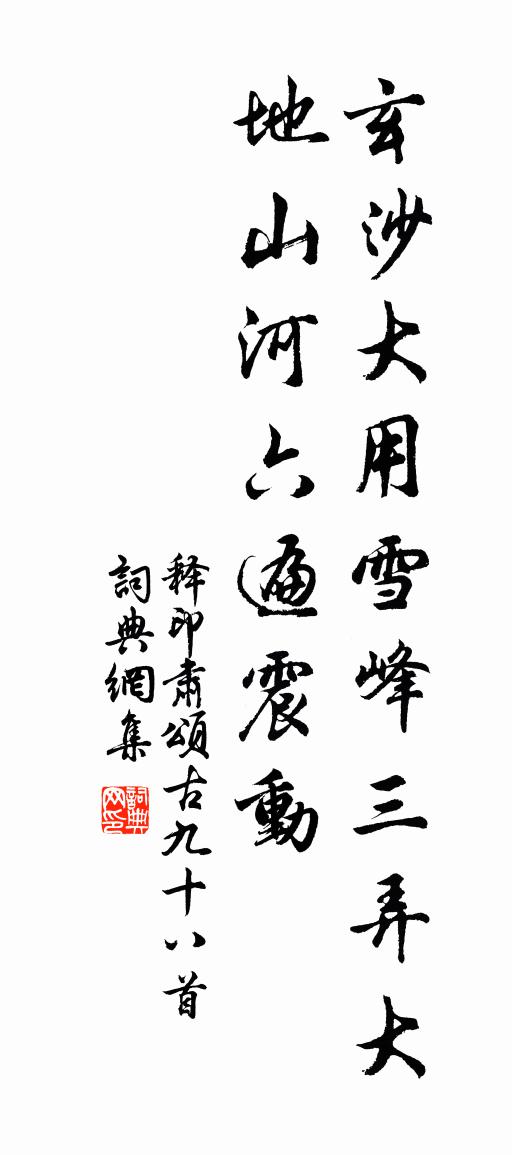 玄沙大用雪峰三弄大
地山河六遍震動
释印肅頌古九十八首
詞典網集
詞典网印